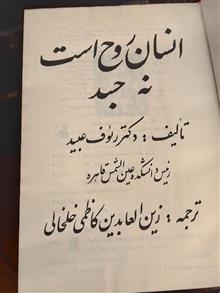 انسان روح است
نه جسد
تألیف : دکتر رئوف عبید
رئیس دانشکده عین الشمس قاهره
ترجمه : زین العابدین کاظمی خلخالی